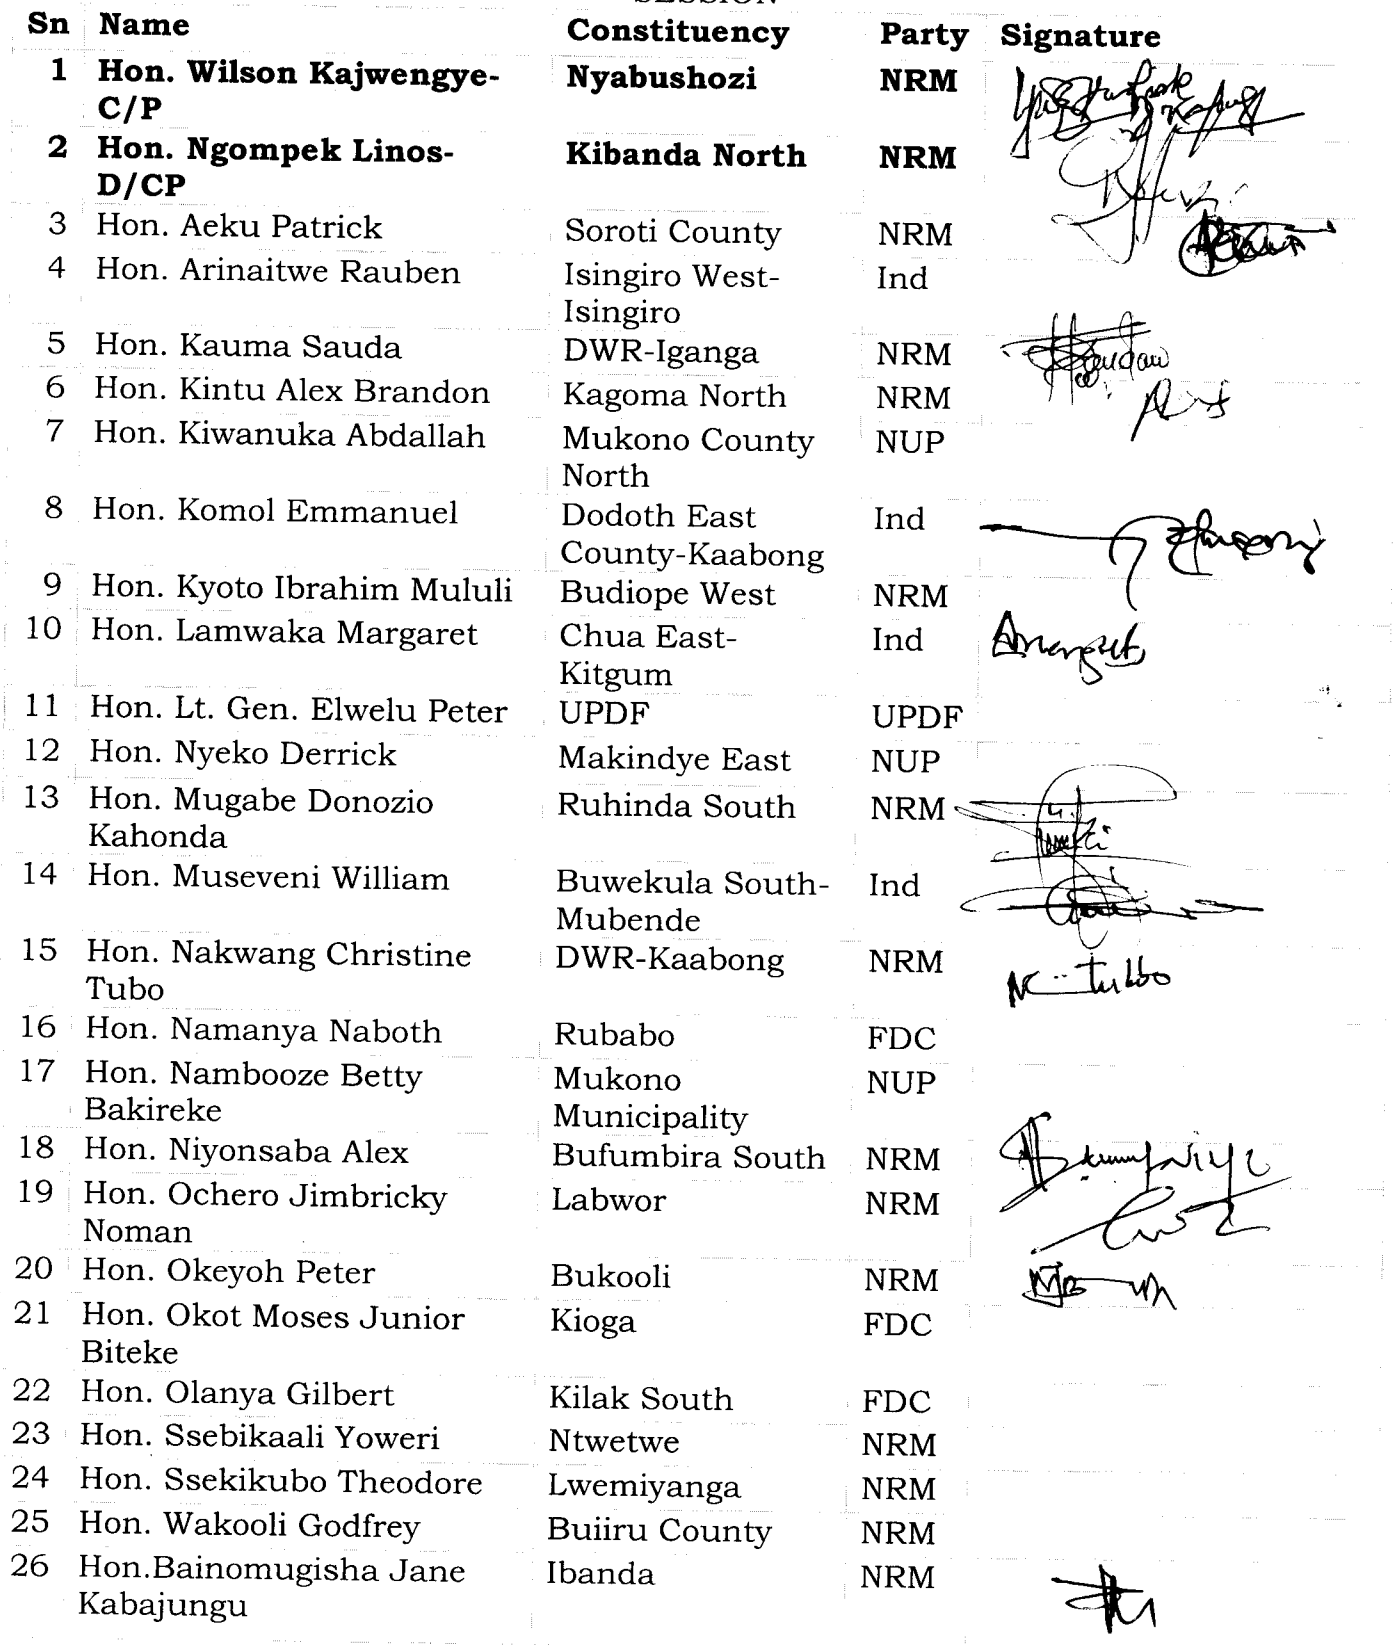 SESSION
Sn Name Constituency Party Signature
1 Hon. Wilson Kajwengye- Nyabushozi NRM
C/P
2 Hon. Ngompek Linos- Kibanda North NRM
D/CP
3 Hon. Aeku Patrick Soroti County NRM
4 Hon. Arinaitwe Rauben Isingiro West- Ind
Isingiro
5 Hon. Kauma Sauda DWR-Iganga NRM
6 Hon. Kintu Alex Brandon Kagoma North NRM
7 Hon. Kiwanuka Abdallah Mukono County NUP
North
8 Hon. Komol Emmanuel Dodoth East Ind
County-Kaabong
9 Hon. Kyoto Ibrahim Mululi Budiope West NRM
10 Hon. Lamwaka Margaret Chua East- Ind
Kitgum
11 Hon. Lt. Gen. Elwelu Peter UPDF UPDF
12 Hon. Nyeko Derrick Makindye East NUP
13 Hon. Mugabe Donozio Ruhinda South NRM
Kahonda
14 Hon. Museveni William Buwekula South- Ind
Mubende
15 Hon. Nakwang Christine DWR-Kaabong NRM
Tubo
16 Hon. Namanya Naboth Rubabo FDC
17 Hon. Nambooze Betty Mukono NUP
Bakireke Municipality
18 Hon. Niyonsaba Alex Bufumbira South NRM
19 Hon. Ochero Jimbricky Labwor NRM
Noman
20 Hon. Okeyoh Peter Bukooli NRM
21 Hon. Okot Moses Junior Kioga FDC
Biteke
22 Hon. Olanya Gilbert Kilak South FDC
23 Hon. Ssebikaali Yoweri Ntwetwe NRM
24 Hon. Ssekikubo Theodore Lwemiyanga NRM
25 Hon. Wakooli Godfrey Buiiru County NRM
26 Hon.Bainomugisha Jane Ibanda NRM
Kabajungu